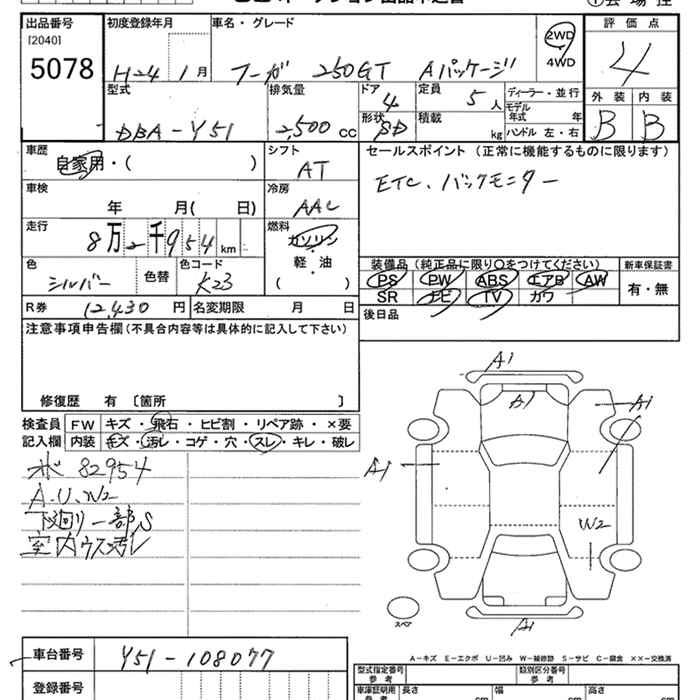 出品番号 初度登録年月 車名・グレード 評価点
[2040]
5078 H24 1月 フーガ 250GT Aパッケージ 2WD 4
4WD
型式 排気量 ドア 定員 ディーラー・並行 外装 内装
4 5人 モデル年式 年
DBA-Y51 2,500cc 形状 SD 積載 kg ハンドル 左・右 B B
車歴 シフト セールスポイント (正常に機能するものに限ります)
自家用・( ) AT ETC、バックモニター
車検 冷房
年 月( 日) AAC
走行 燃料
8万2千954km ガソリン
軽・油
( )
色 色替 色コード 装備品(純正品に限り○をつけてください) 新車保証書
シルバー K23 PS PW ABS エアB AW 有・無
SR ナビ TV カワ
R券 12,430円 名変期限 月 日 後日品
注意事項申告欄(不具合内容等は具体的に記入して下さい)
修復歴 有 〔箇所 〕
検査員 FW キズ・飛石・ヒビ割・リペア跡・×要
記入欄 内装 キズ・汚レ・コゲ・穴・スレ・キレ・破レ
82954
A.U.W2
下廻り一部S
室内ウス汚レ
A1
A1
A1
A1
W2
A1
スペア
A-キズ E-エクボ U-凹み W-補修跡 S-サビ C-腐食 ××-交換済
車台番号 Y51-108077
登録番号
型式指定番号 参考 類別区分番号 参考
車庫証明用 参考 長さ cm 幅 cm 高さ cm